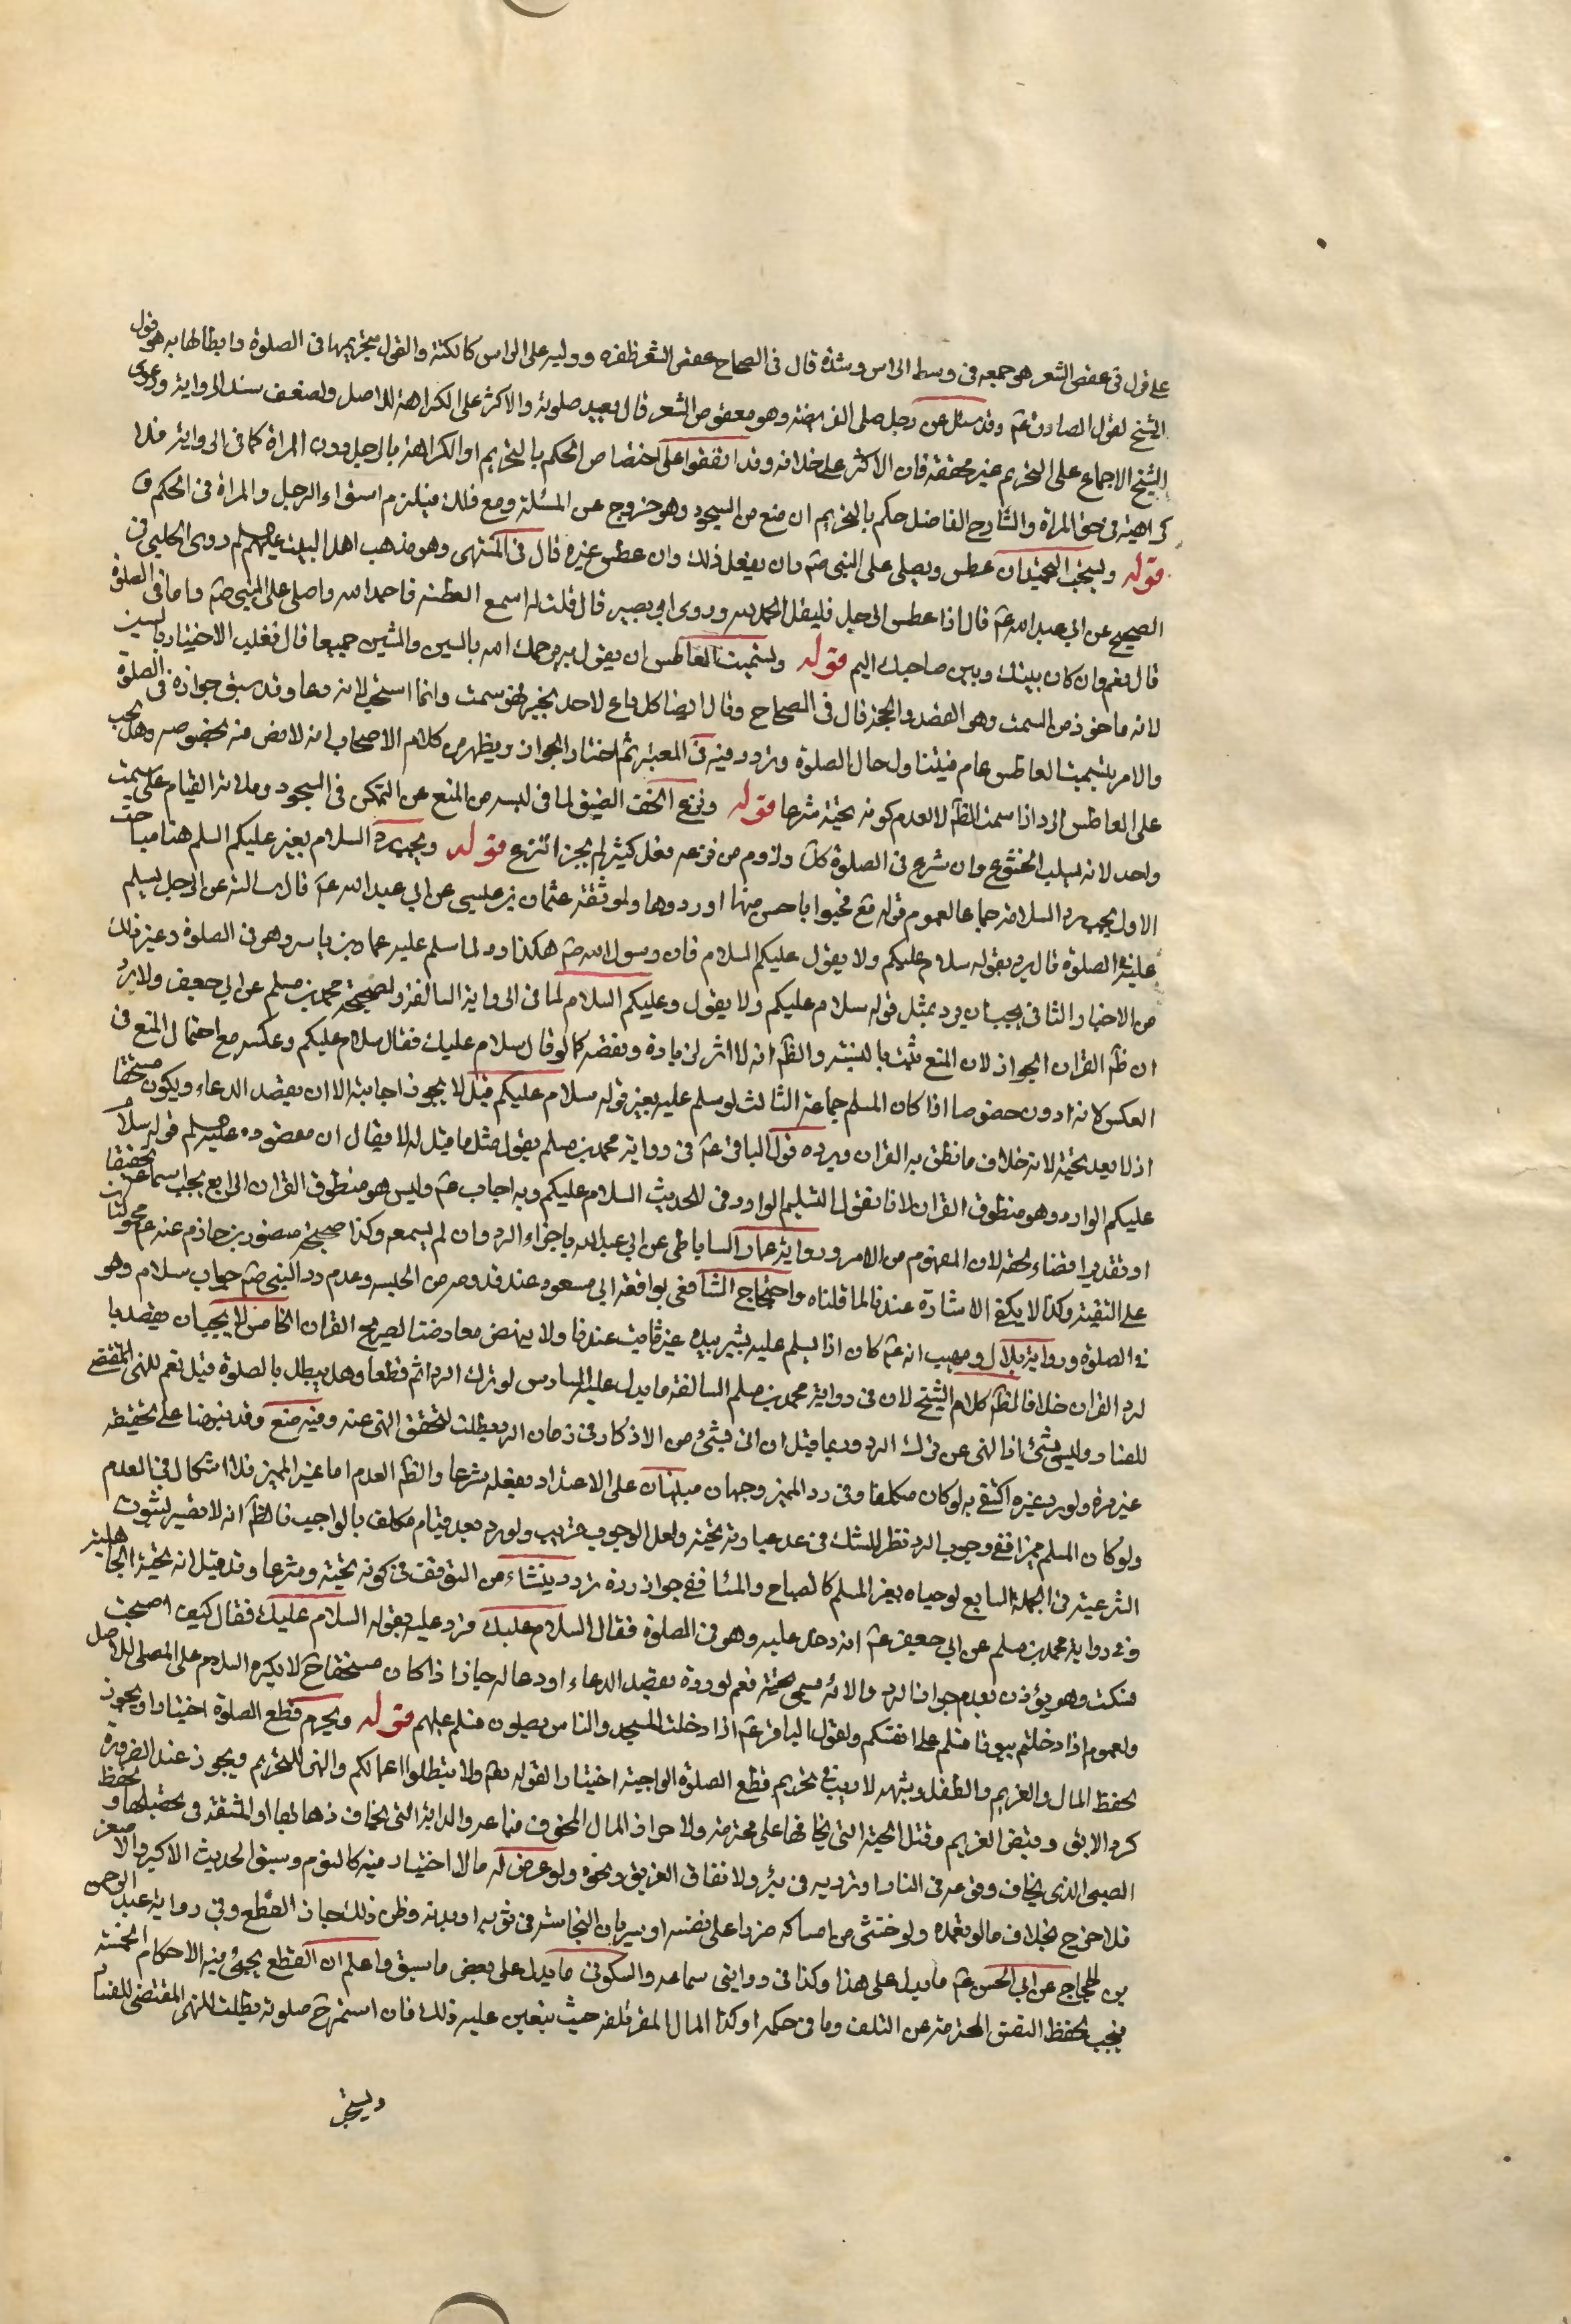 على قول في عقص الشعر هو جمعه في وسط الراس وشده قال في الصحاح عقص الشعر ظفره و وليه على الراس كالكتة والقول بتحريمها في الصلوة وابطالها به هو قول
الشيخ لقول الصادق عم وقد سئل عن رجل صلى الفريضة وهو معقوص الشعر قال يعيد صلوته والاكثر على الكراهة للاصل ولضعف سند الرواية ودعوى
الشيخ الاجماع على التحريم غير محققة فان الاكثر على خلافه وقد اتفقوا على اختصاص الحكم بالتحريم او الكراهة بالرجل دون المراة كما في الرواية فلا
كراهية في حق المراة والشارح الفاضل حكم بالتحريم ان منع من السجود وهو خروج عن المسئلة ومع ذلك فيلزم استواء الرجل والمراة في الحكم ق
قوله ويستحب التحميد ان عطس ويصلى على النبى صم وان يفعل ذلك وان عطس غيره قال في المنتهى وهو مذهب اهل البيت عليهم لم روى الحلبي في
الصحيح عن ابي عبد الله عم قال اذا عطس الرجل فليقل الحمد لله وروى ابي بصير قال قلت له اسمع العطسة فاحمد الله واصلي على النبى صم وانا في الصلوة
قال نعم وان كان بينك وبين صاحبك اليم قوله وتسميت العاطس ان يقول يرحمك الله بالسين والشين جميعا قال ثعلب الاختيار بالسين
لانه ماخوذ من السمت وهو القصد والمحجة قال في الصحاح وقال ايضا كل داع لاحد بخير فهو سمت وانما استحب لانه دعا وقد سبق جوازه في الصلوة
والامر بتسميت العاطس عام فيتناول حال الصلوة وتردد فيه في المعتبر ثم اختار الجواز ويظهر من كلام الاصحاب انه لا نص فيه بخصوصه وهل يجب
على العاطس الرد اذا سمت الظم لا لعدم كونه تحية شرعا قوله ونزع الخف الضيق لما في لبسه من المنع عن التمكن في السجود وملائة القيام على سمت
واحد لانه يسلب الخشوع وان شرع في الصلوة كك ولزوم من نزعه فعل كثير لم يجز النزع قوله ويجب رد السلام بغير عليكم السلم هنا مباحث
الاول يجب رد السلام اجماعا لعموم قوله تع فحيوا باحسن منها او ردوها ولموثقة عثمان بن عيسى عن ابي عبد الله عم قال سالته عن الرجل يسلم
عليه في الصلوة قال يرد بقوله سلام عليكم ولا يقول عليكم السلام فان رسول الله صم هكذا رد لما سلم عليه عمار بن ياسر وهو في الصلوة وغير ذلك
من الاخبار الثاني يجب ان يرد بمثل قوله سلام عليكم ولا يقول وعليكم السلام لما في الرواية السالفة ولصحيحة محمد بن مسلم عن ابي جعفر ولا يرد
ان ظم القران الجواز لان المنع ثبت بالسنة والظم انه لا اثر لزيادة ونقصه كما لو قال سلام عليك فقال سلام عليكم وعكسه مع احتمال المنع في
العكس لانه ادون خصوصا اذا كان المسلم جماعة الثالث لو سلم عليه بغير قوله سلام عليكم قيل لا يجوز اجابته الا ان يقصد الدعاء ويكون مستحقا
اذ لا يعد تحية لانه خلاف ما نطق به القران ويرده قول الباقر عم في رواية محمد بن مسلم يقول مثل ما قيل له لا يقال ان مقصوده عليه لم قوله سلام
عليكم الوارد وهو منطوق القران لانا نقول التسليم الوارد في الحديث السلام عليكم وبه اجاب عم وليس هو منطوق القران الرابع يجب اسماعه تحقيقا
او تقديرا قضاء لحقه لان المفهوم من الامر ورواية عمار الساباطي عن ابي عبد الله باجزاء الرد وان لم يسمعه وكذا صحيحة منصور بن حازم عنه عم محمولتان
على التقية وكذا لا يكفي الاشارة عندنا لما قلناه واحتجاج الشافعي بواقعة ابي مسعود عند قدومه من الحبشة وعدم رد النبى صم جواب سلام وهو
في الصلوة ورواية بلال وصهيب انه عم كان اذا يسلم عليه يشير بيده غير ثابت عندنا ولا ينهض معارضتا لصريح القران الخامس لا يجب ان يقصد بالرد
لرد القران خلافا لظم كلام الشيخ لان في رواية محمد بن مسلم السالفة ما يدل عليه السادس لو ترك الرد اثم قطعا وهل يبطل بالصلوة قيل نعم للنهي المقتضي
للفساد وليس بشئ اذ النهي عن ترك الرد وربما قيل ان اتى بشئ من الاذكار في زمان الرد بطلت لتحقق النهي عنه وفيه منع وقد نبهنا على تحقيقه
غير مرة ولو رد غيره اكتفى به لو كان مكلفا وفي رد المميز وجهان مبنيان على الاعتداد بفعله شرعا والظم العدم اما غير المميز فلا اشكال في العدم
ولو كان المسلم مميزا ففي وجوب الرد نظر للشك في عد عبارته تحية ولعل الوجوب قريب ولو رد بعد قيام مكلف بالواجب فالظم انه لا يضير لثبوت
الشرعية في الجملة السابع لو حياه بغير السلم كالصباح والمسا ففي جواز رده تردد ينشاء من التوقف في كونه تحية وشرعا وقد قيل انه تحية الجاهلية
وفي رواية محمد بن مسلم عن ابي جعفر عم انه دخل عليه وهو في الصلوة فقال السلام عليك فرد عليه بقوله السلام عليك فقال كيف اصبحت
فسكت وهو يؤذن بعدم جواز الرد ولانه يسمى تحية نعم لو رده بقصد الدعاء او دعا له جاز اذا كان مستحقا ح لا يكره السلام على المصلى للاصل
ولعموم اذا دخلتم بيوتا فسلموا على انفسكم ولقول الباقر عم اذا دخلت المسجد والناس يصلون فسلم عليهم قوله ويحرم قطع الصلوة اختيارا ويجوز
لحفظ المال والغريم والطفل وشبهه لا ريب في تحريم قطع الصلوة الواجبة اختيارا لقوله تعم ولا تبطلوا اعمالكم والنهي للتحريم ويجوز عند الضرورة
كرد الابق وقبض الغريم وقتل الحية التي يخافها على محترمة ولاحراز المال المخوف ضياعه والدابة التي يخاف ذهابها او المشقة في تحصيلها وحفظ
الصبى الذى يخاف وقوعه في النار او ترديه في بئر ولانقاذ الغريق ونحوه ولو عرض له ما لا اختيار فيه كالنوم وسبق الحديث الاكبر والاصغر
فلا حرج بخلاف ما لو تعمده ولو خشى من امساكه ضررا على نفسه او سريان النجاسة في ثوبه او بدنه وظن ذلك جاز القطع وفي رواية عبد الرحمن
بن الحجاج عن ابي الحسن عم ما يدل على هذا وكذا في روايتي سماعه والسكوني ما يدل على بعض ما سبق واعلم ان القطع يجئ فيه الاحكام الخمسة
فيجب لحفظ النفس المحترمة عن التلف وما في حكمه او كذا المال المضر تلفه حيث يتعين عليه ذلك فان استمر ح صلوته بطلت للنهى المقتضي للفساد
ويستحب